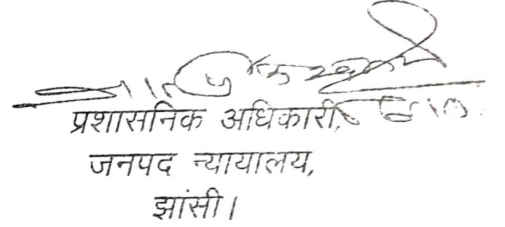 प्रशासनिक अधिकारी,
जनपद न्यायालय,
झांसी।